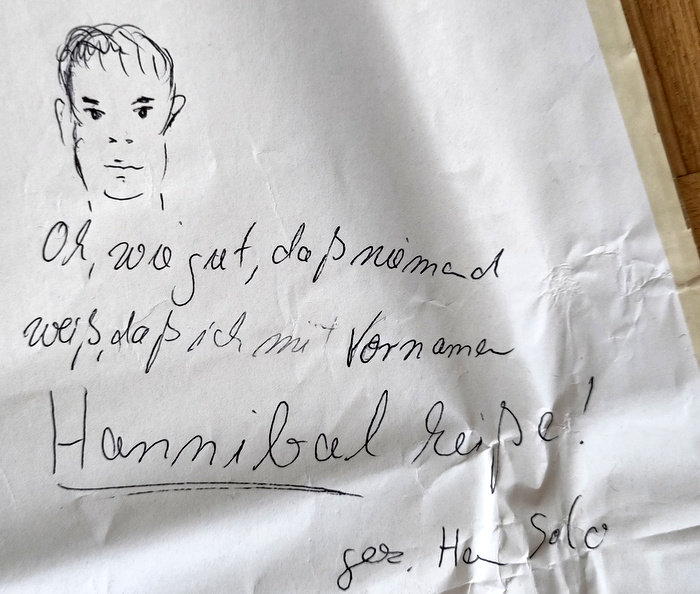 Oh, wie gut, daß niemand
weiß, daß ich mit Vornamen
Hannibal heiße!
gez. Han Solo